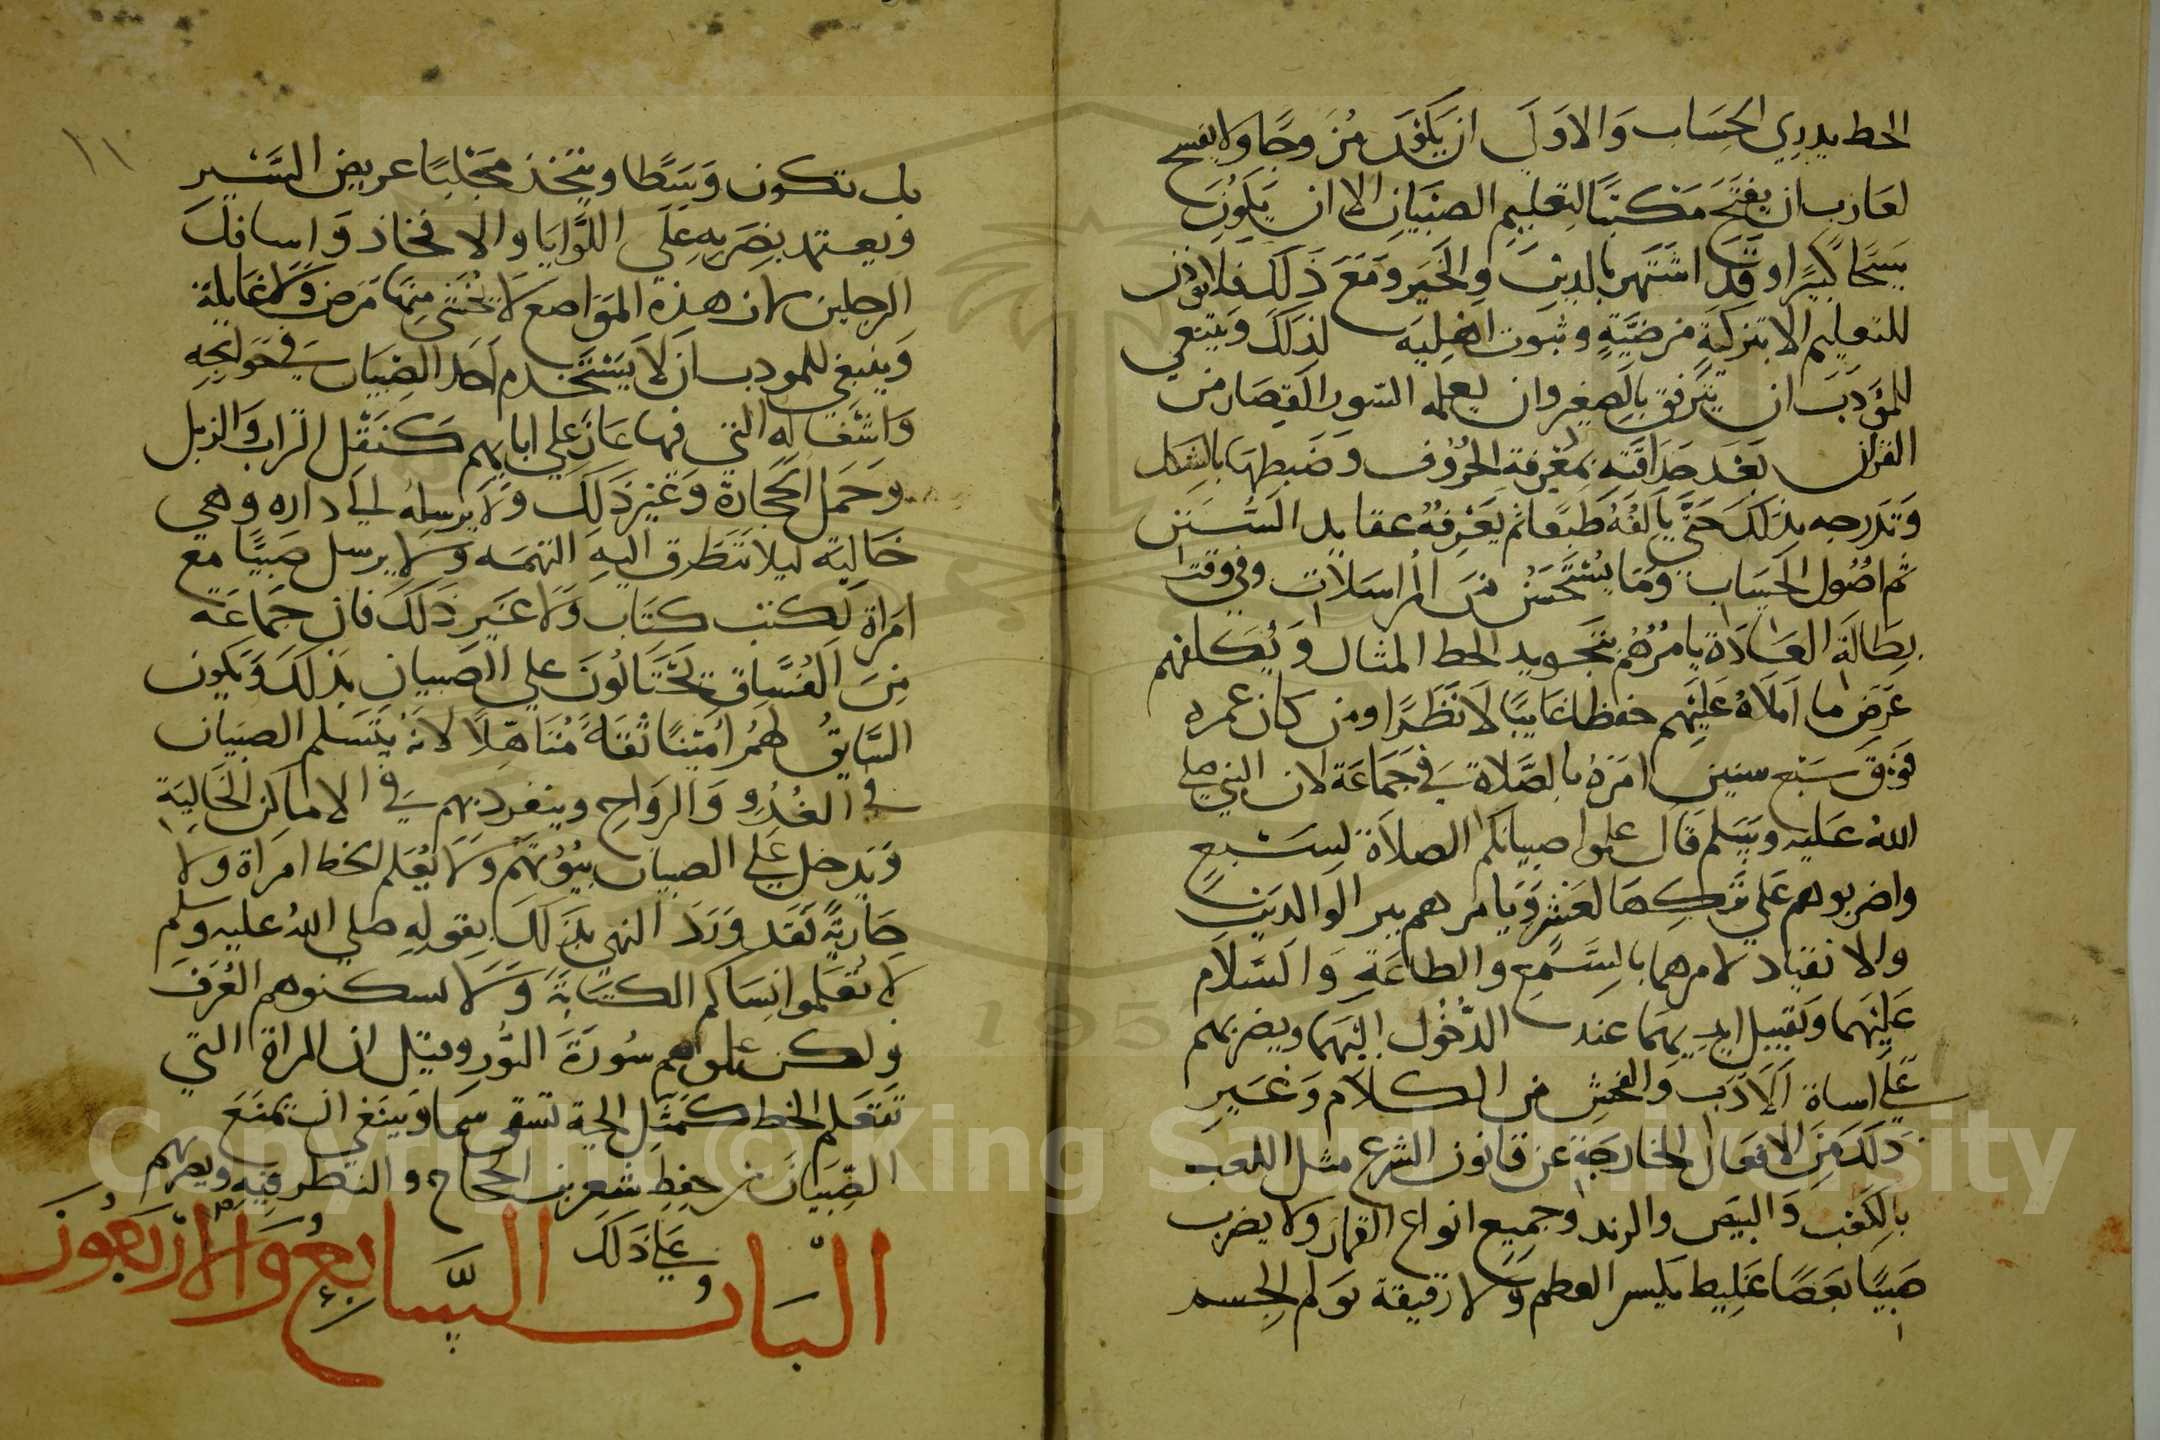 الخط يدري الحساب والاولي ان يكون مزوجا ولا يفسح
لعازب ان يفتح مكتبا لتعليم الصبيان الا ان يكون
شيخا كبيرا وقد اشتهر بالدين والخير ومع ذلك فلا يوذن
للتعليم الا بتزكية مرضية وثبوت اهليه لذلك وينبغي
للمؤدب ان يترفق بالصغير وان يعلمه السور القصار من
القران بعد حذاقته بمعرفة الحروف وضبطها بالشكل
وتدرجه بذلك حتي يالفه طبعا ثم يعرفه عقايد السنن
ثم اصول الحساب وما يستحسن من المراسلات وفي وقت
بطالة العادة يامرهم بتجويد الخط المثال ويكلفهم
عرض ما املاه عليهم حفظا غايبا لا نظرا ومن كان عمره
فوق سبع سنين امره بالصلاة في جماعة لان النبي صلي
الله عليه وسلم قال علموا صبيانكم الصلاة لسبع
واضربوهم علي تركها لعشر ويامرهم ببر الوالدين
والانقياد لامرهما بالسمع والطاعة والسلام
عليهما وتقبيل ايديهما عند الدخول اليهما ويضربهم
علي اساة الادب والفحش من الكلام وغير
ذلك من الافعال الخارجة عن قانون الشرع مثل اللعب
بالكعب والبيض والرند وجميع انواع القمار ولا يضرب
صبيا بعصا غليط يكسر العطم ولا رقيقة تولم الجسم
بل تكون وسطا ويتخذ مجلبا عريض السير
ويعتمد بضربه علي اللوايا والافخاذ واسافل
الرجلين لان هذه المواضع لا يخشي منها مرض ولا غايلة
وينبغي للمودب ان لا يستخدم احد الصبيان في حوايجه
واشغاله التي فيها عار علي ابايهم كنقل التراب والزبل
وحمل الحجارة وغير ذلك ولا يرسله الي داره وهي
خالية ليلا تتطرق اليه التهمه ولا يرسل صبيا مع
امراة لكتب كتاب ولا غير ذلك فان جماعة
من الفساق يحتالون علي الصبيان بذلك ويكون
السايق لهم امينا ثقة متاهلا لانه يتسلم الصبيان
في الغدو والرواح وينفرد بهم في الاماكن الخالية
ويدخل علي الصبيان بيوتهم ولا يعلم الخط امراة ولا
جارية فقد ورد النهي بذلك بقوله صلي الله عليه وسلم
لا تعلموا نساكم الكتابة ولا تسكنوهم الغرف
ولكن علموهم سورة النور وقيل ان المراة التي
تتعلم الخط كمثل الحية تسقي سما وينبغي ان تمنع
الصبيان من حفظ شعر بن الحجاج والنظر فيه ويضربهم
علي ذلك
الباب السابع والاربعون